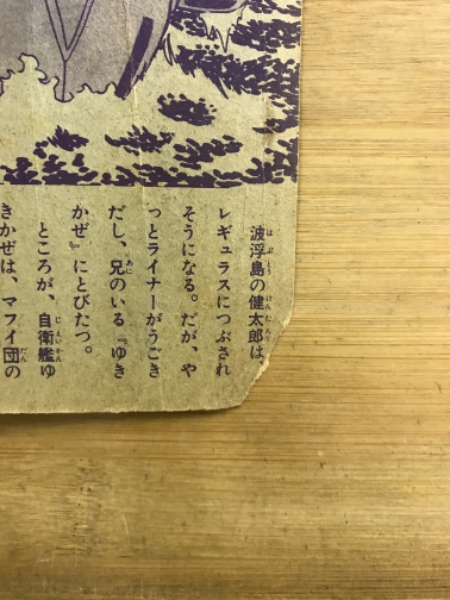 波浮島の健太郎は、
レギュラスにつぶされ
そうになる。だが、や
っとライナーがうごき
だし、兄のいる『ゆき
かぜ』にとびたつ。
ところが、自衛艦ゆ
きかぜは、マフイ団の